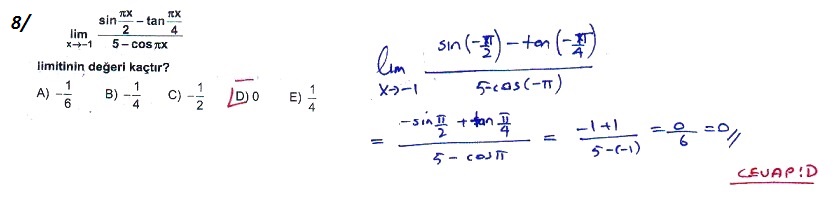 8/ lim x→-1 (sin πx/2 - tan πx/4) / (5 - cos πx)
limitinin değeri kaçtır?
A) -1/6 B) -1/4 C) -1/2 D) 0 E) 1/4
lim x→-1 (sin(-π/2) - tan(-π/4)) / (5-cos(-π))
= (-sin π/2 + tan π/4) / (5 - cosπ) = (-1+1) / (5-(-1)) = 0/6 = 0//
CEVAP:D